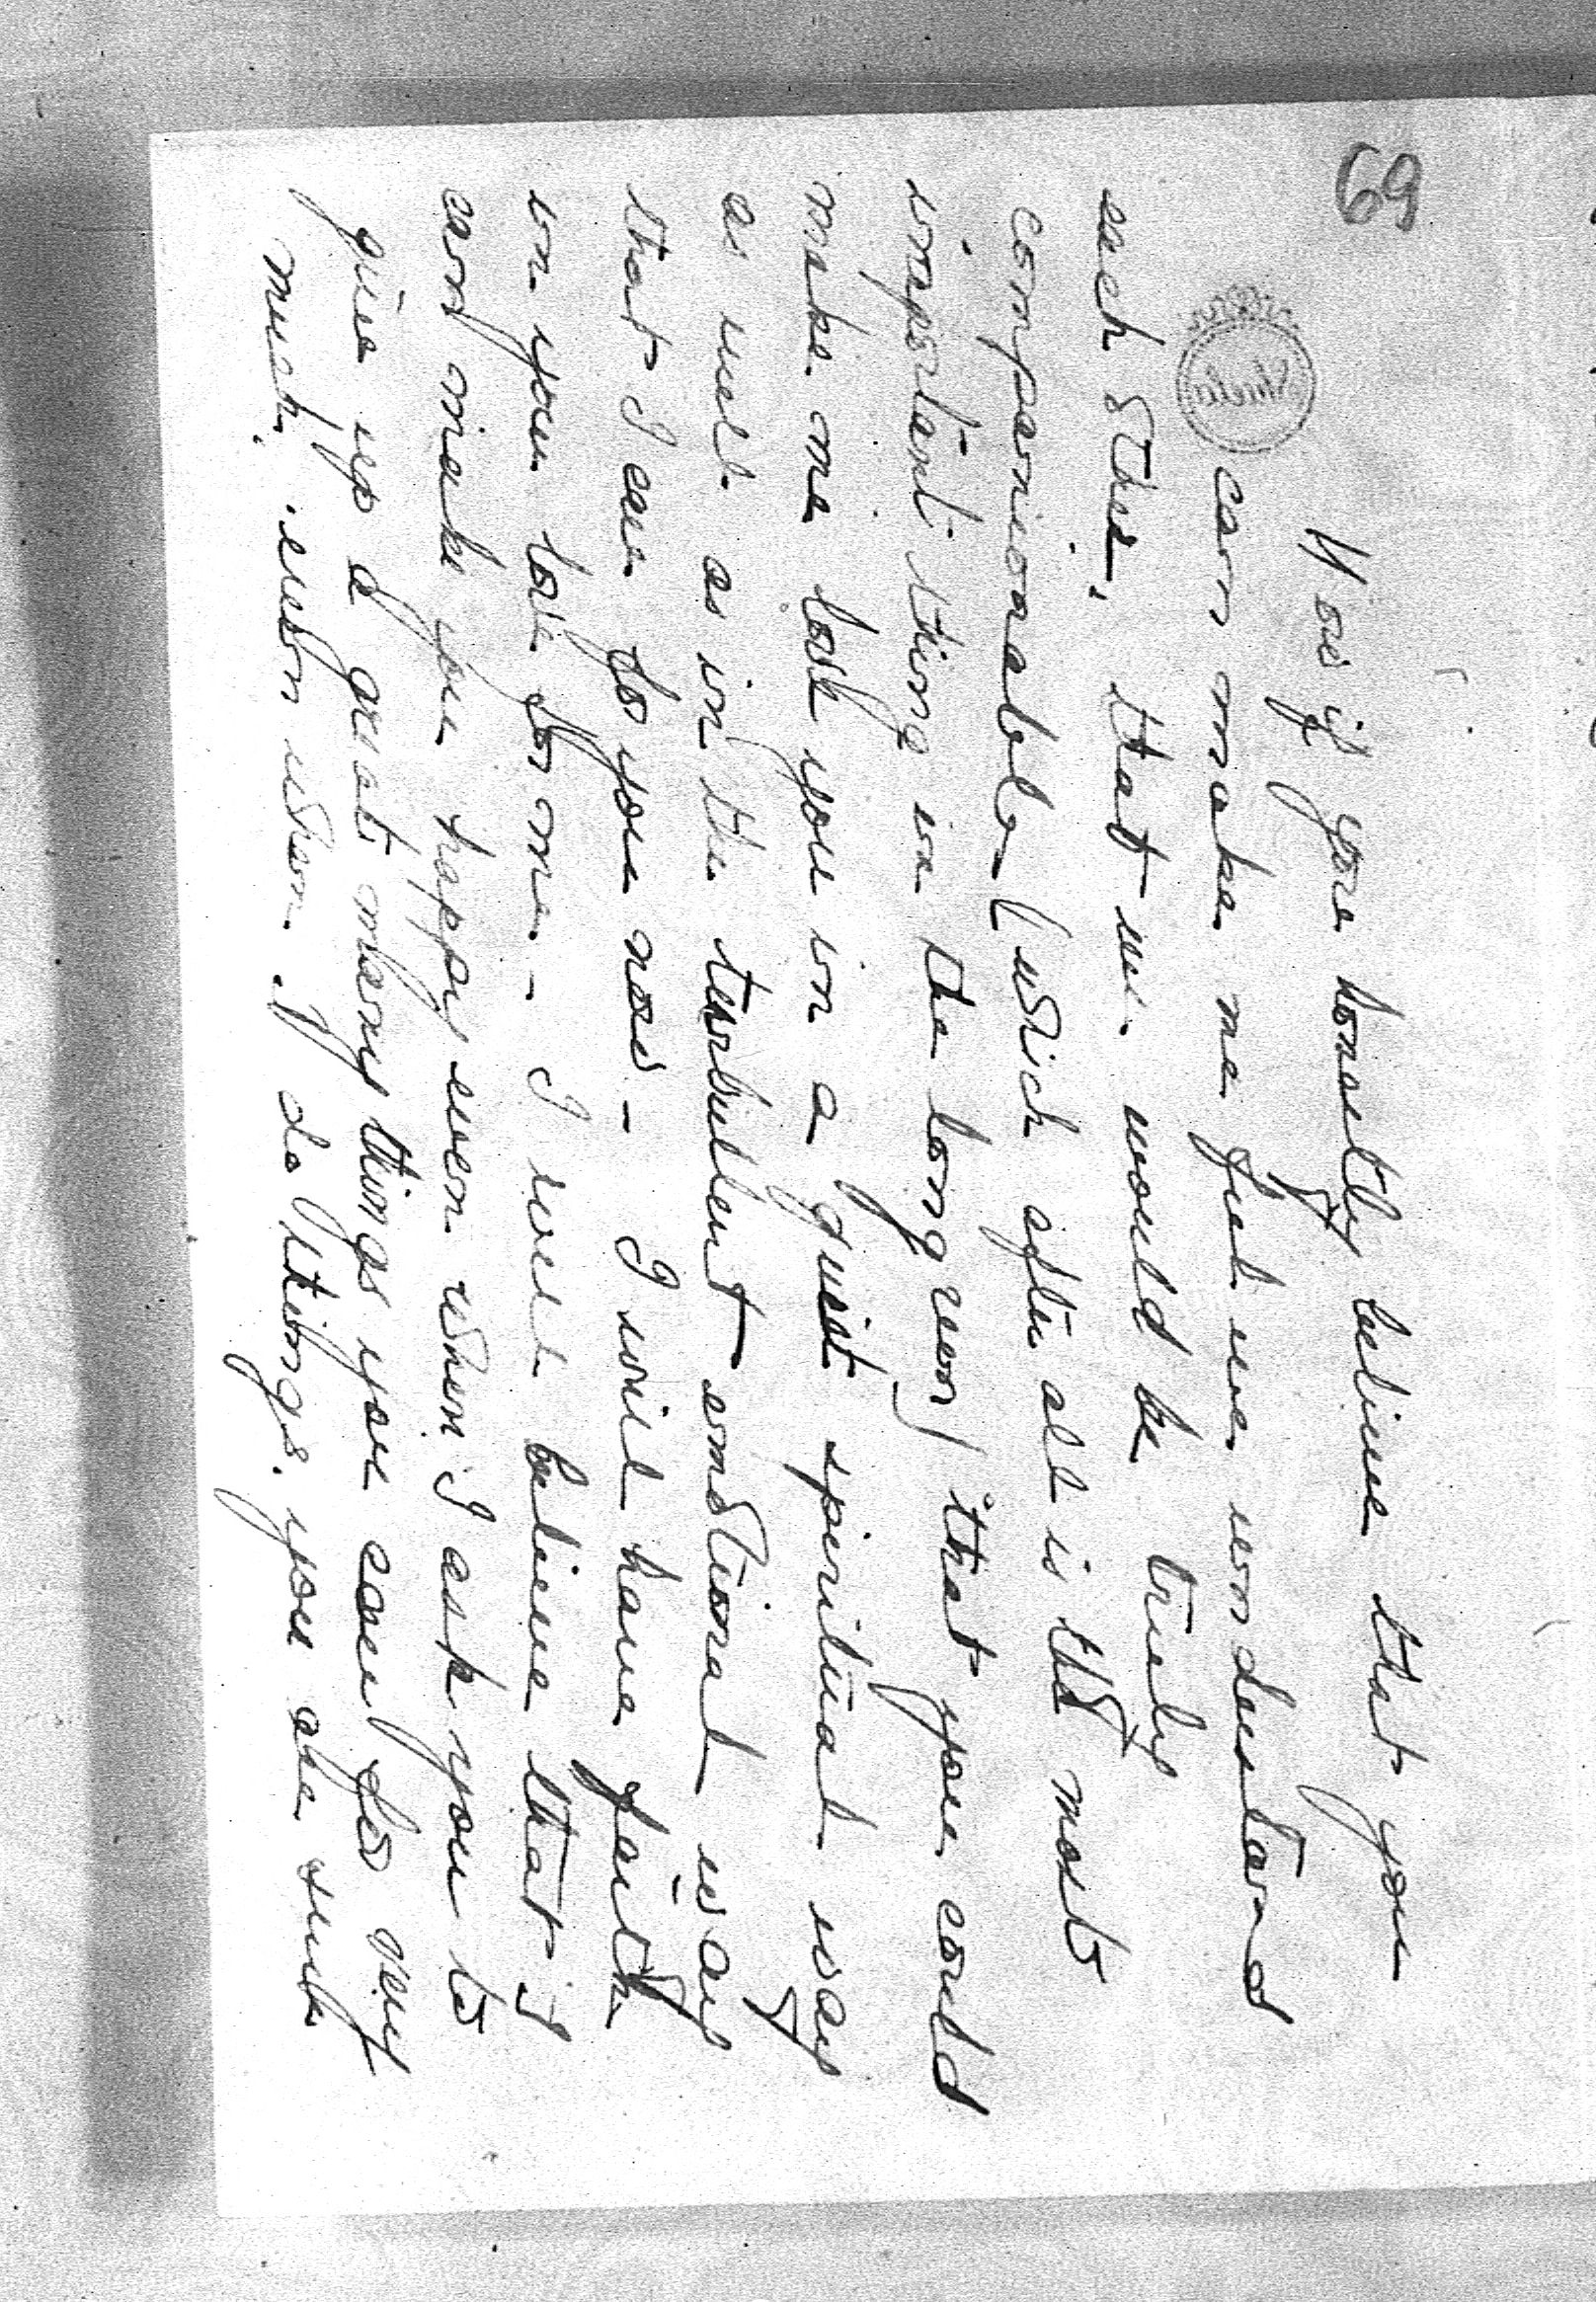 69
Now if you honestly believe that you
can make me feel we understand
each other, that we would be truly
companionable (which after all is the most
important thing in the long run) that you could
make me love you in a quiet spiritual way
as well as in the turbulent emotional way
that I care for you now - I will have faith
in your love for me - I will believe that I
can make you happy even when I ask you to
give up a great many things you care for very
much, even when I do things you